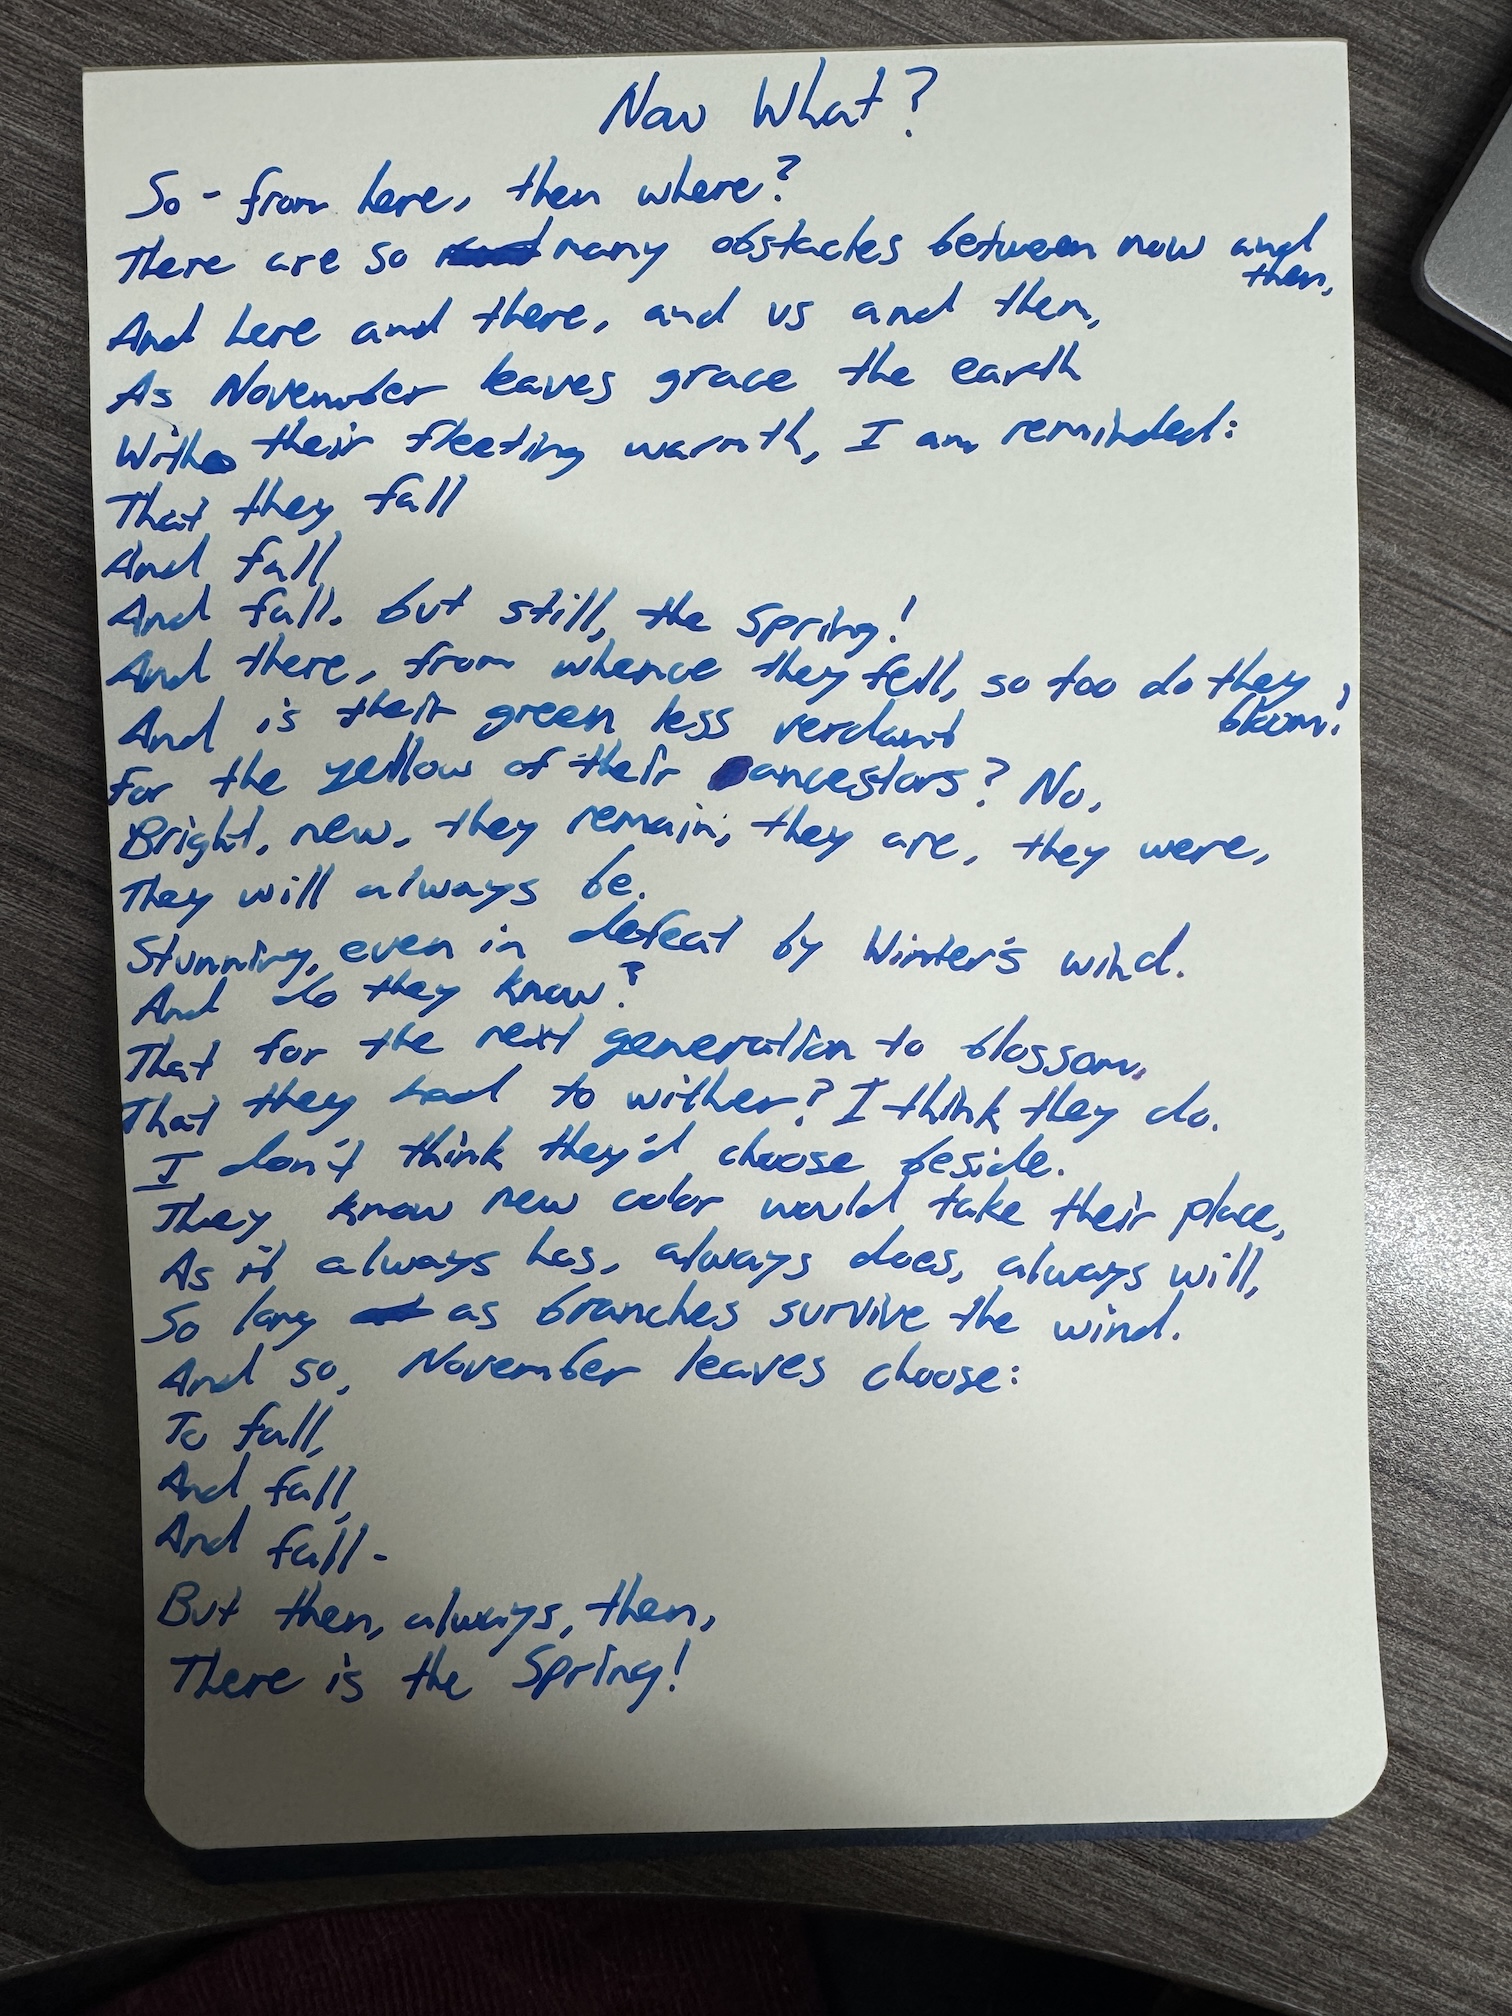 Now What?
So - from here, then where?
There are so many obstacles between now and
then,
And here and there, and us and them,
As November leaves grace the earth
With their fleeting warmth, I am reminded:
That they fall
And fall
And fall. but still, the Spring!
And there, from whence they fell, so too do they
bloom!
And is their green less verdant
For the yellow of their ancestors? No,
Bright, new, they remain; they are, they were,
They will always be.
Stunning, even in defeat by Winter's wind.
And do they know?
That for the next generation to blossom,
That they had to wither? I think they do.
I don't think they'd choose beside.
They know new color would take their place,
As it always has, always does, always will,
So long as branches survive the wind.
And so, November leaves choose:
To fall,
And fall,
And fall-
But then, always, then,
There is the Spring!